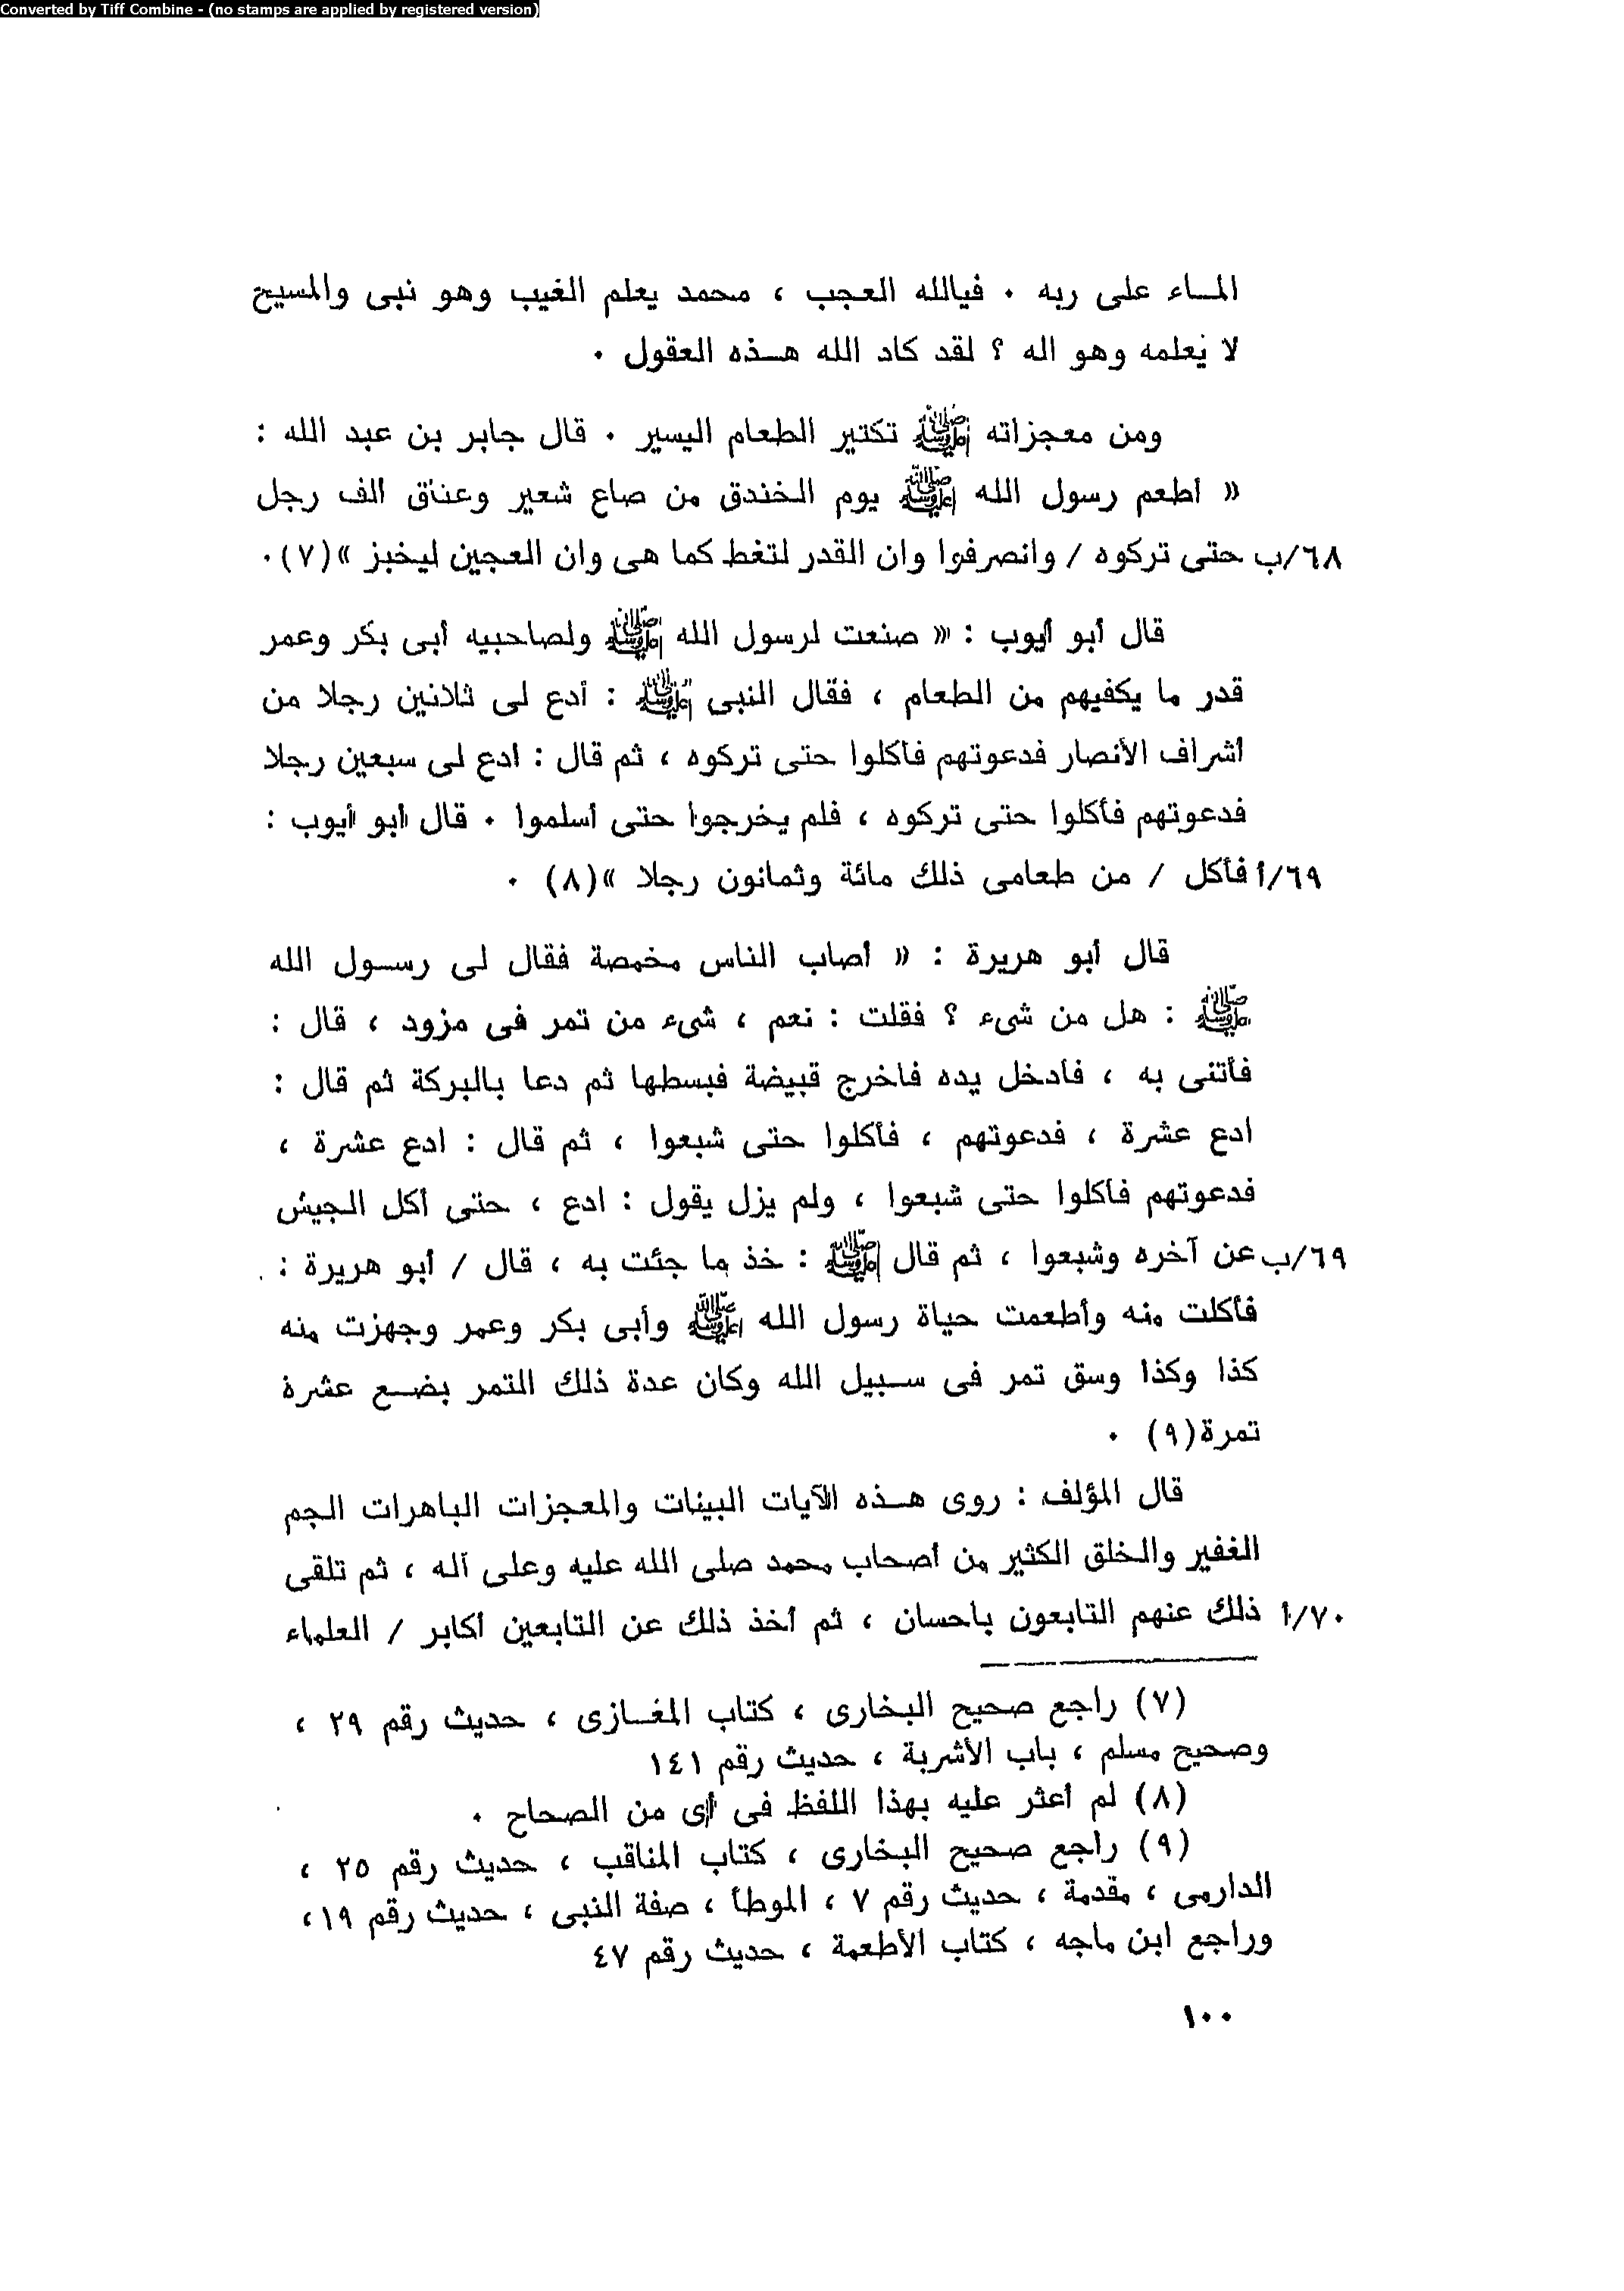 Converted by Tiff Combine - (no stamps are applied by registered version)
المـاء على ربه . فيالله العجب ، محمد يعلم الغيب وهو نبى والمسيح
لا يعلمه وهو اله ؟ لقد كاد الله هـذه العقول .
ومن معجزاته ﷺ تكثير الطعام اليسير . قال جابر بن عبد الله :
« أطعم رسول الله ﷺ يوم الخندق من صاع شعير وعناق ألف رجل
٦٨/ب حتى تركوه / وانصرفوا وان القدر لتغط كما هى وان العجين ليخبز »(٧).
قال أبو أيوب : « صنعت لرسول الله ﷺ ولصاحبيه أبى بكر وعمر
قدر ما يكفيهم من الطعام ، فقال النبى ﷺ : أدع لى ثلاثين رجلا من
أشراف الأنصار فدعوتهم فأكلوا حتى تركوه ، ثم قال : ادع لى سبعين رجلا
فدعوتهم فأكلوا حتى تركوه ، فلم يخرجوا حتى أسلموا . قال أبو أيوب :
٦٩/أ فأكل / من طعامى ذلك مائة وثمانون رجلا »(٨) .
قال أبو هريرة : « أصاب الناس مخمصة فقال لى رسـول الله
ﷺ : هل من شىء ؟ فقلت : نعم ، شىء من تمر فى مزود ، قال :
فأتنى به ، فأدخل يده فاخرج قبيضة فبسطها ثم دعا بالبركة ثم قال :
ادع عشرة ، فدعوتهم ، فأكلوا حتى شبعوا ، ثم قال : ادع عشرة ،
فدعوتهم فأكلوا حتى شبعوا ، ولم يزل يقول : ادع ، حتى أكل الجيش
٦٩/ب عن آخره وشبعوا ، ثم قال ﷺ : خذ ما جئت به ، قال / أبو هريرة :
فأكلت منه وأطعمت حياة رسول الله ﷺ وأبى بكر وعمر وجهزت منه
كذا وكذا وسق تمر فى سـبيل الله وكان عدة ذلك التمر بضـع عشرة
تمرة(٩) .
قال المؤلف : روى هـذه الآيات البينات والمعجزات الباهرات الجم
الغفير والخلق الكثير من أصحاب محمد صلى الله عليه وعلى آله ، ثم تلقى
٧٠/أ ذلك عنهم التابعون باحسان ، ثم أخذ ذلك عن التابعين أكابر / العلماء
(٧) راجع صحيح البخارى ، كتاب المغـازى ، حديث رقم ٢٩ ،
وصحيح مسلم ، باب الأشربة ، حديث رقم ١٤١
(٨) لم أعثر عليه بهذا اللفظ فى أى من الصحاح .
(٩) راجع صحيح البخارى ، كتاب المناقب ، حديث رقم ٢٥ ،
الدارمى ، مقدمة ، حديث رقم ٧ ، الموطأ ، صفة النبى ، حديث رقم ١٩ ،
وراجع ابن ماجه ، كتاب الأطعمة ، حديث رقم ٤٧
١٠٠